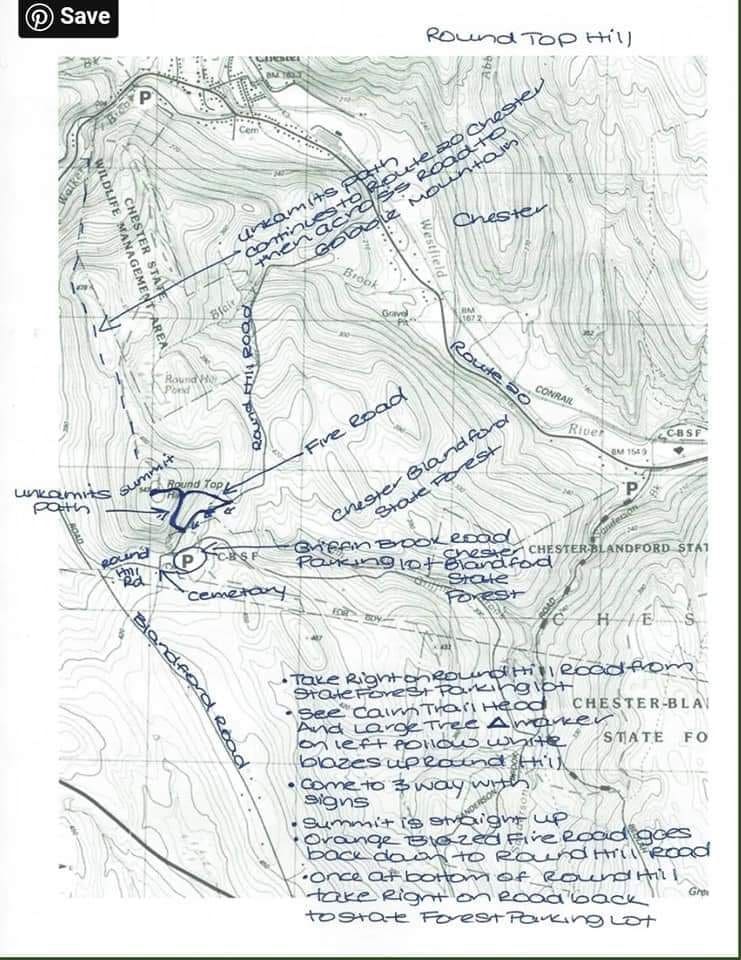 Save
Round Top Hill
Chester
BM 163.7
P
Cem
Brook
Walker
WILDLIFE MANAGEMENT AREA
CHESTER STATE
unkamits path
continues to Route 20 Chester
then across road to
Gobble Mountain
Chester
Westfield
Brook
Blair
Gravel
Pit
BM
167.2
Round Hill Road
Round Hill
Pond
Route 20
CONRAIL
River
CBSF
BM 154.9
P
Fire Road
Chester Blandford
State Forest
summit
Round Top
unkamits
path
Round
Hill
Rd
P
CBSF
cemetary
Griffin Brook Road
Parking lot Chester
Blandford
State
Forest
CHESTER-BLANDFORD STAT
ROAD
Blandford Road
ROAD
C H E S
CHESTER-BLA
STATE FO
• Take Right on Round Hill Road from
State Forest Parking lot
• See Cairn Trail Head
And Large Tree marker
on left follow white
blazes up Round Hill
• Come to 3 way with
signs
• Summit is straight up
• Orange Blazed Fire Road goes
back down to Round Hill Road
• Once at bottom of Round Hill
take Right on Road back
to State Forest Parking Lot